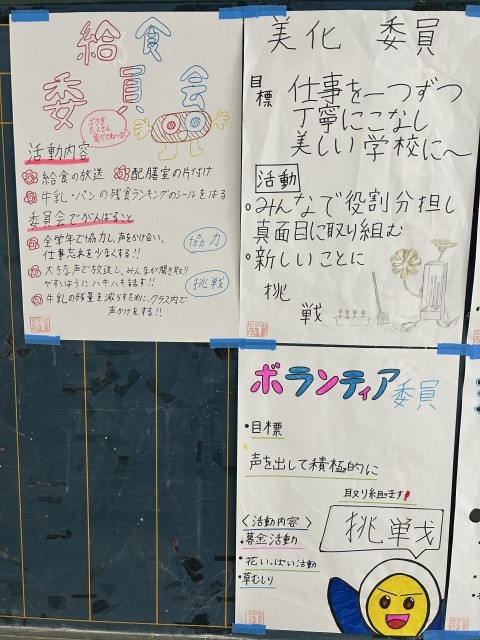 給食
委員会
ボクを
たくさん
食べてね
活動内容
給食の放送
配膳室の片付け
牛乳・パンの残食ランキングのシールをはる
委員会でがんばること
全学年で協力し、声をかけ合い、
仕事忘れを少なくする!!
協力
大きな声で放送し、みんなが聞き取り
やすいようにハキハキ話す!!
挑戦
牛乳の残量を減らすために、クラス内で
声かけをする!!
美化 委員
目標
仕事を一つずつ
丁寧にこなし
美しい学校に〜
活動
・みんなで役割分担し
真面目に取り組む
・新しいことに
挑
戦
ボランティア委員
・目標
声を出して積極的に
取り組みます!
〈活動内容〉
・募金活動
・花いっぱい活動
・草むしり
挑戦